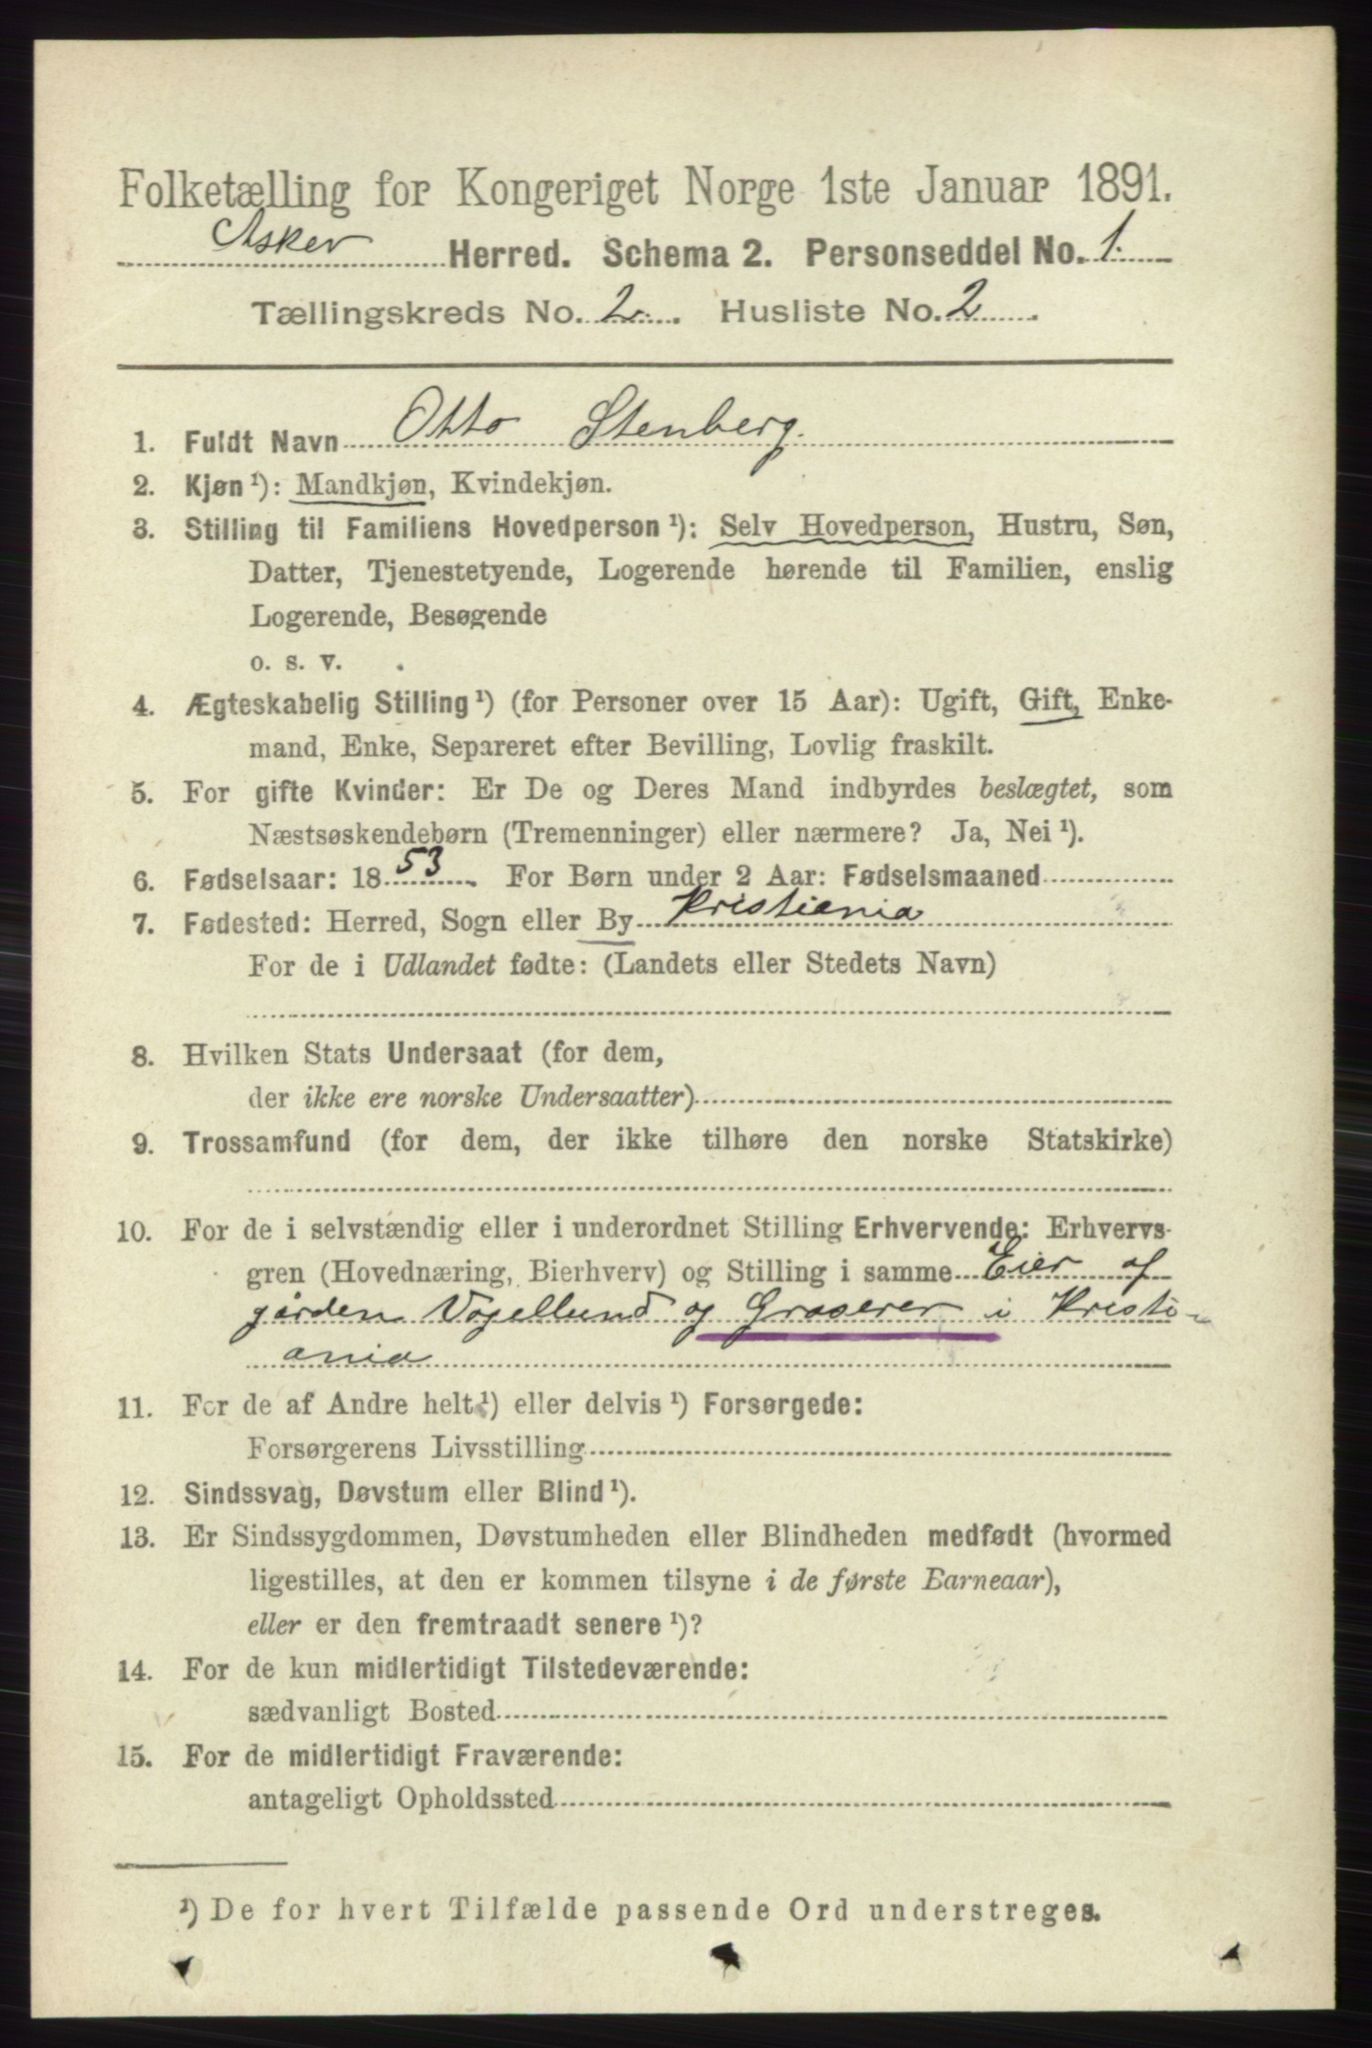 Folketælling for Kongeriget Norge 1ste Januar 1891.
Asker Herred. Schema 2. Personseddel No. 1.
Tællingskreds No. 2. Husliste No. 2.
1. Fuldt Navn Otto Stenberg.
2. Kjøn ¹): Mandkjøn, Kvindekjøn.
3. Stilling til Familiens Hovedperson ¹): Selv Hovedperson, Hustru, Søn,
Datter, Tjenestetyende, Logerende hørende til Familien, enslig
Logerende, Besøgende
o. s. v.
4. Ægteskabelig Stilling ¹) (for Personer over 15 Aar): Ugift, Gift, Enke-
mand, Enke, Separeret efter Bevilling, Lovlig fraskilt.
5. For gifte Kvinder: Er De og Deres Mand indbyrdes beslægtet, som
Næstsøskendebørn (Tremenninger) eller nærmere? Ja, Nei ¹).
6. Fødselsaar: 1853. For Børn under 2 Aar: Fødselsmaaned
7. Fødested: Herred, Sogn eller By Kristiania
For de i Udlandet fødte: (Landets eller Stedets Navn)
8. Hvilken Stats Undersaat (for dem,
der ikke ere norske Undersaatter)
9. Trossamfund (for dem, der ikke tilhøre den norske Statskirke)
10. For de i selvstændig eller i underordnet Stilling Erhvervende: Erhvervs-
gren (Hovednæring, Bierhverv) og Stilling i samme Eier af
gården Vogellund og Groserer i Kristi-
ania
11. For de af Andre helt ¹) eller delvis ¹) Forsørgede:
Forsørgerens Livsstilling
12. Sindssvag, Døvstum eller Blind ¹).
13. Er Sindssygdommen, Døvstumheden eller Blindheden medfødt (hvormed
ligestilles, at den er kommen tilsyne i de første Barneaar),
eller er den fremtraadt senere ¹)?
14. For de kun midlertidigt Tilstedeværende:
sædvanligt Bosted
15. For de midlertidigt Fraværende:
antageligt Opholdssted
¹) De for hvert Tilfælde passende Ord understreges.